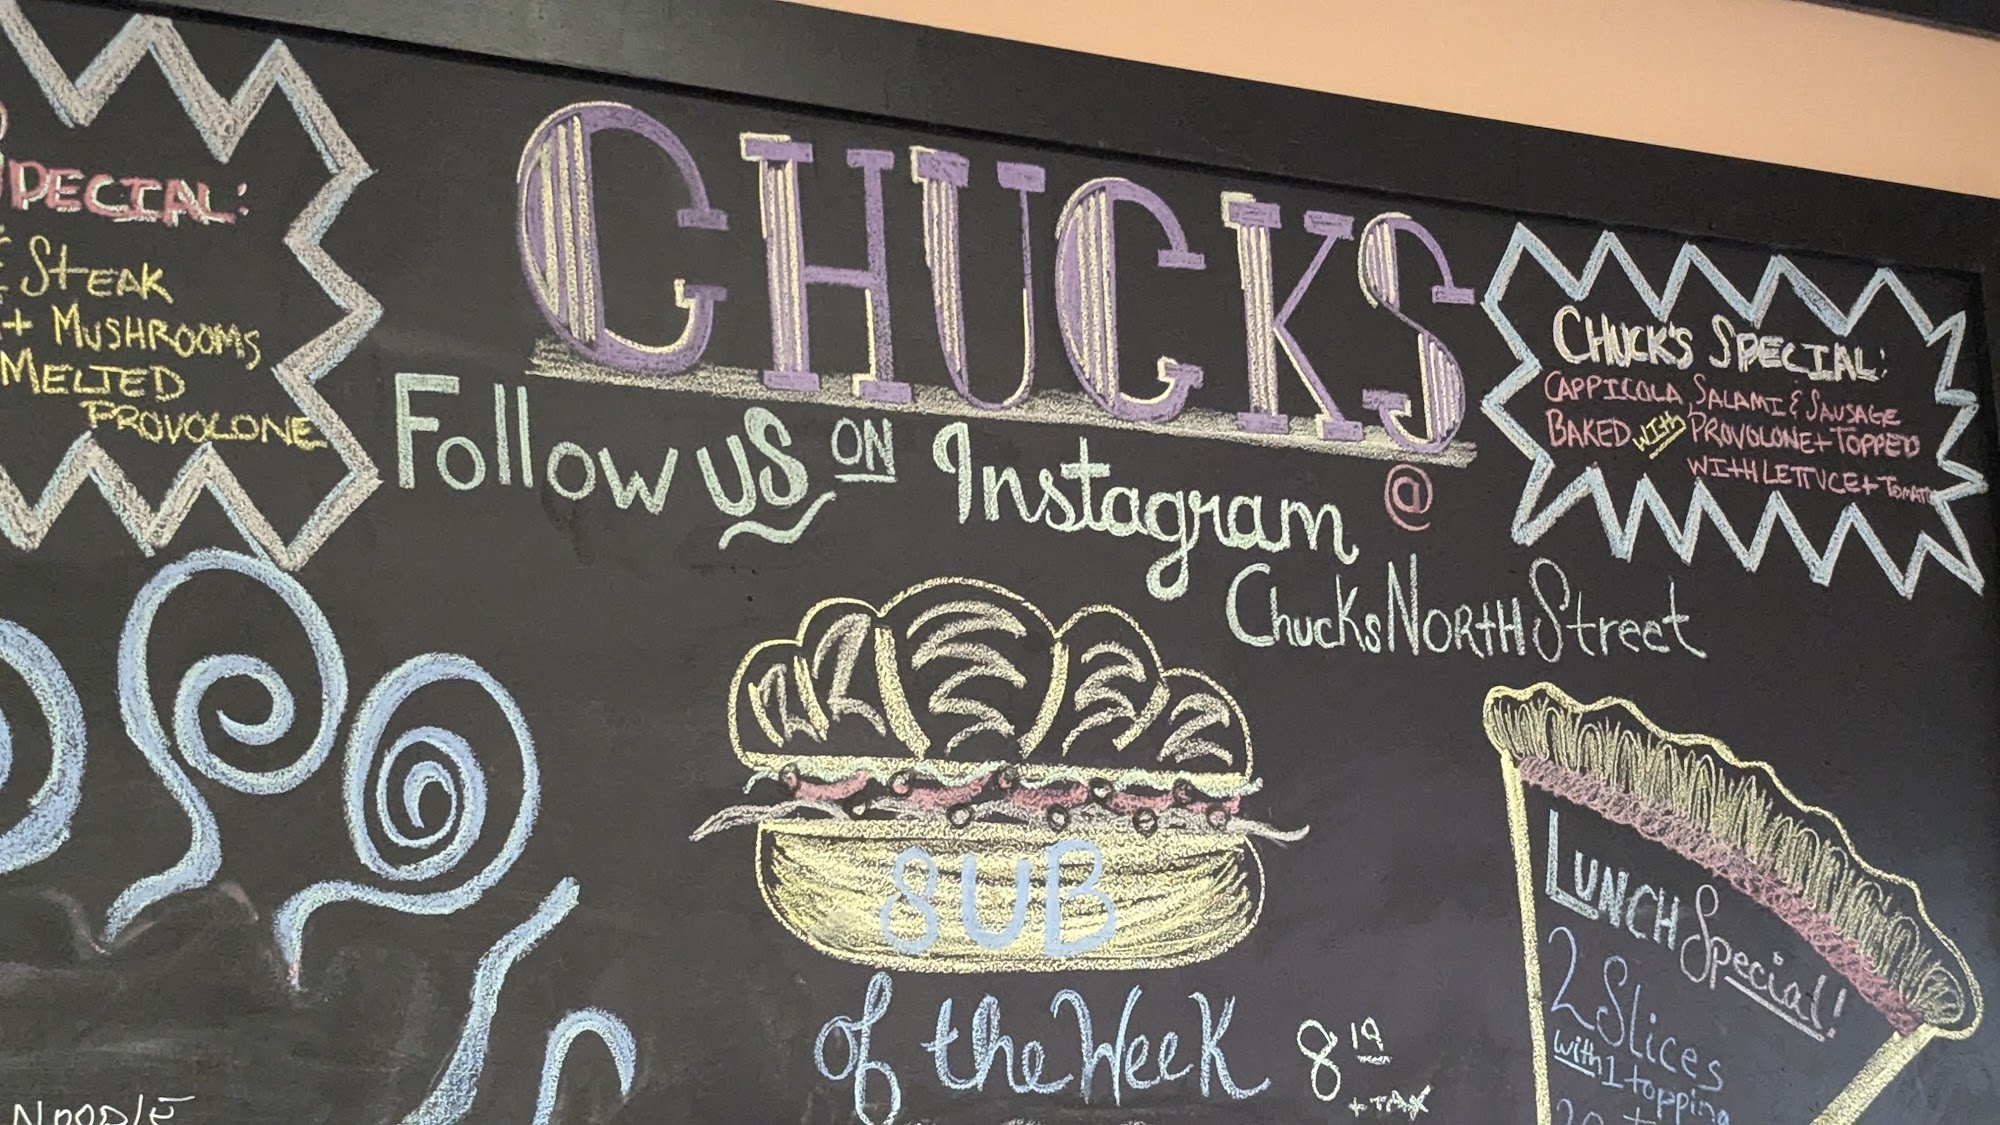 CHUCKS
Follow us ON Instagram @
ChucksNorthStreet
SPECIAL:
STEAK
+ MUSHROOMS
MELTED
PROVOLONE
CHUCK'S SPECIAL:
CAPPICOLA, SALAMI & SAUSAGE
BAKED with PROVOLONE + TOPPED
WITH LETTUCE + TOMATO
SUB
of the Week
8 19
+ TAX
LUNCH Special!
2 Slices
with 1 topping
NOODLE